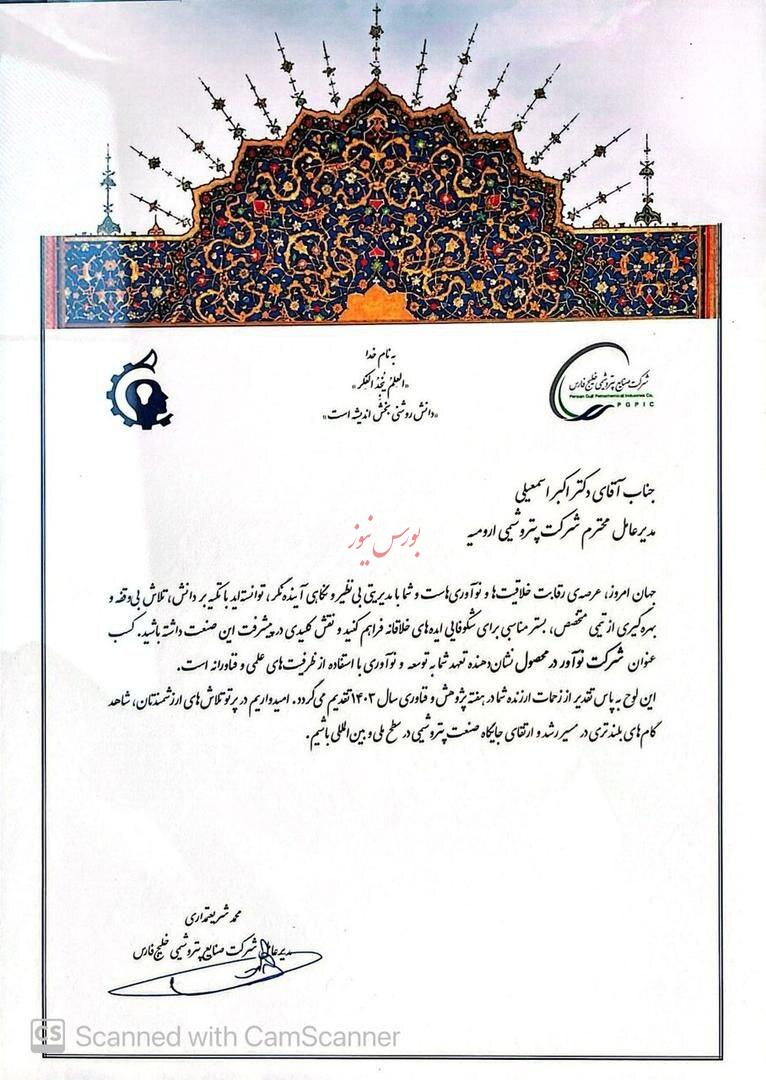 به نام خدا
«العلم ینجد الفکر»
«دانش روشنی بخش اندیشه است»
شرکت صنایع پتروشیمی خلیج فارس
Persian Gulf Petrochemical Industries Co.
PGPIC
جناب آقای دکتر اکبر اسمعیلی
مدیرعامل محترم شرکت پتروشیمی ارومیه
بورس نیوز
جهان امروز، عرصه‌ی رقابت خلاقیت‌ها و نوآوری‌هاست و شما با مدیریتی بی‌نظیر و نگاهی آینده‌نگر، توانسته‌اید با تکیه بر دانش، تلاش بی‌وقفه و
بهره‌گیری از تیمی متخصص، بستر مناسبی برای شکوفایی ایده‌های خلاقانه فراهم کنید و نقش کلیدی در پیشرفت این صنعت داشته باشید. کسب
عنوان شرکت نوآور در محصول نشان‌دهنده تعهد شما به توسعه و نوآوری با استفاده از ظرفیت‌های علمی و فناورانه است.
این لوح به پاس تقدیر از زحمات ارزنده شما در هفته پژوهش و فناوری سال ۱۴۰۳ تقدیم می‌گردد. امیدواریم در پرتو تلاش‌های ارزشمندتان، شاهد
گام‌های بلندتری در مسیر رشد و ارتقای جایگاه صنعت پتروشیمی در سطح ملی و بین‌المللی باشیم.
محمد شریعتمداری
مدیرعامل شرکت صنایع پتروشیمی خلیج فارس
CS Scanned with CamScanner